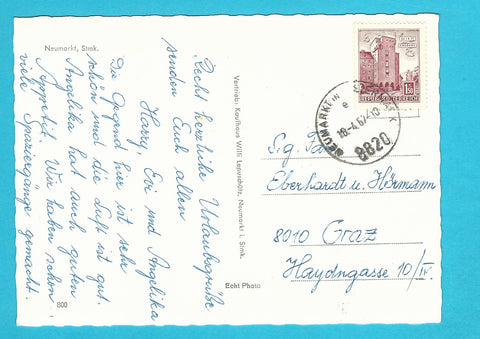 Neumarkt, Stmk.
Recht herzliche Urlaubsgrüße
senden Euch allen
Harry, Evi und Angelika
Die Gegend hier ist sehr
schön und die Luft ist gut.
Angelika hat auch guten
Appetit. Wir haben schon
viele Spaziergänge gemacht.
800
Vertrieb: Kaufhaus Willi Lepuschütz, Neumarkt i. Stmk.
Echt Photo
REPUBLIK ÖSTERREICH
1.50
NEUMARKT IN STEIERMARK
e
8820
S.g. Fam.
Eberhardt u. Hörmann
8010 Graz
Haydngasse 10/IV.